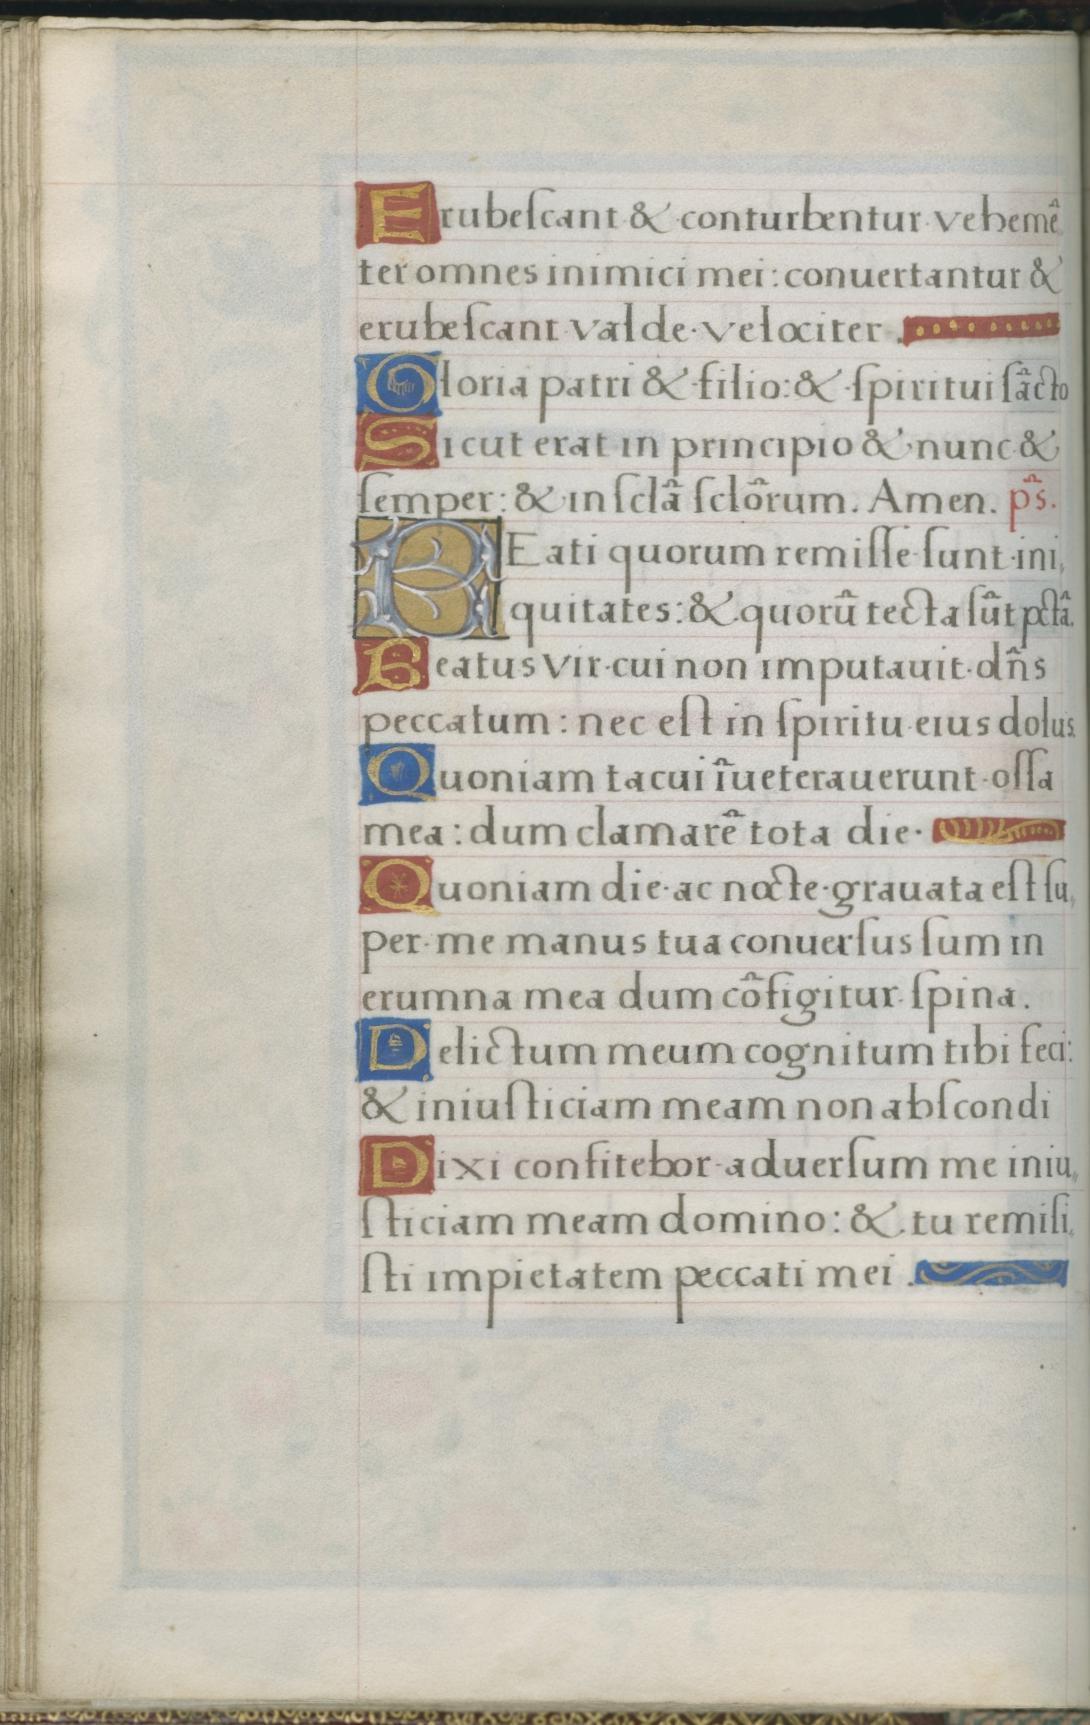 Erubeſcant & conturbentur vehemẽ
ter omnes inimici mei: conuertantur &
erubeſcant valde velociter.
Gloria patri & filio: & ſpiritui ſãcto
Sicut erat in principio & nunc &
ſemper: & in ſclã ſclõrum. Amen. p̃s.
BEati quorum remiſſe ſunt ini,
quitates: & quorũ tecta ſũt pctã.
Beatus vir cui non imputauit dñs
peccatum: nec eſt in ſpiritu eius dolus.
Quoniam tacui ĩueterauerunt oſſa
mea: dum clamarẽ tota die.
Quoniam die ac nocte grauata eſt ſu,
per me manus tua conuerſus ſum in
erumna mea dum cõfigitur ſpina.
Delictum meum cognitum tibi feci:
& iniuſticiam meam non abſcondi
Dixi confitebor aduerſum me iniu,
ſticiam meam domino: & tu remiſi,
ſti impietatem peccati mei.